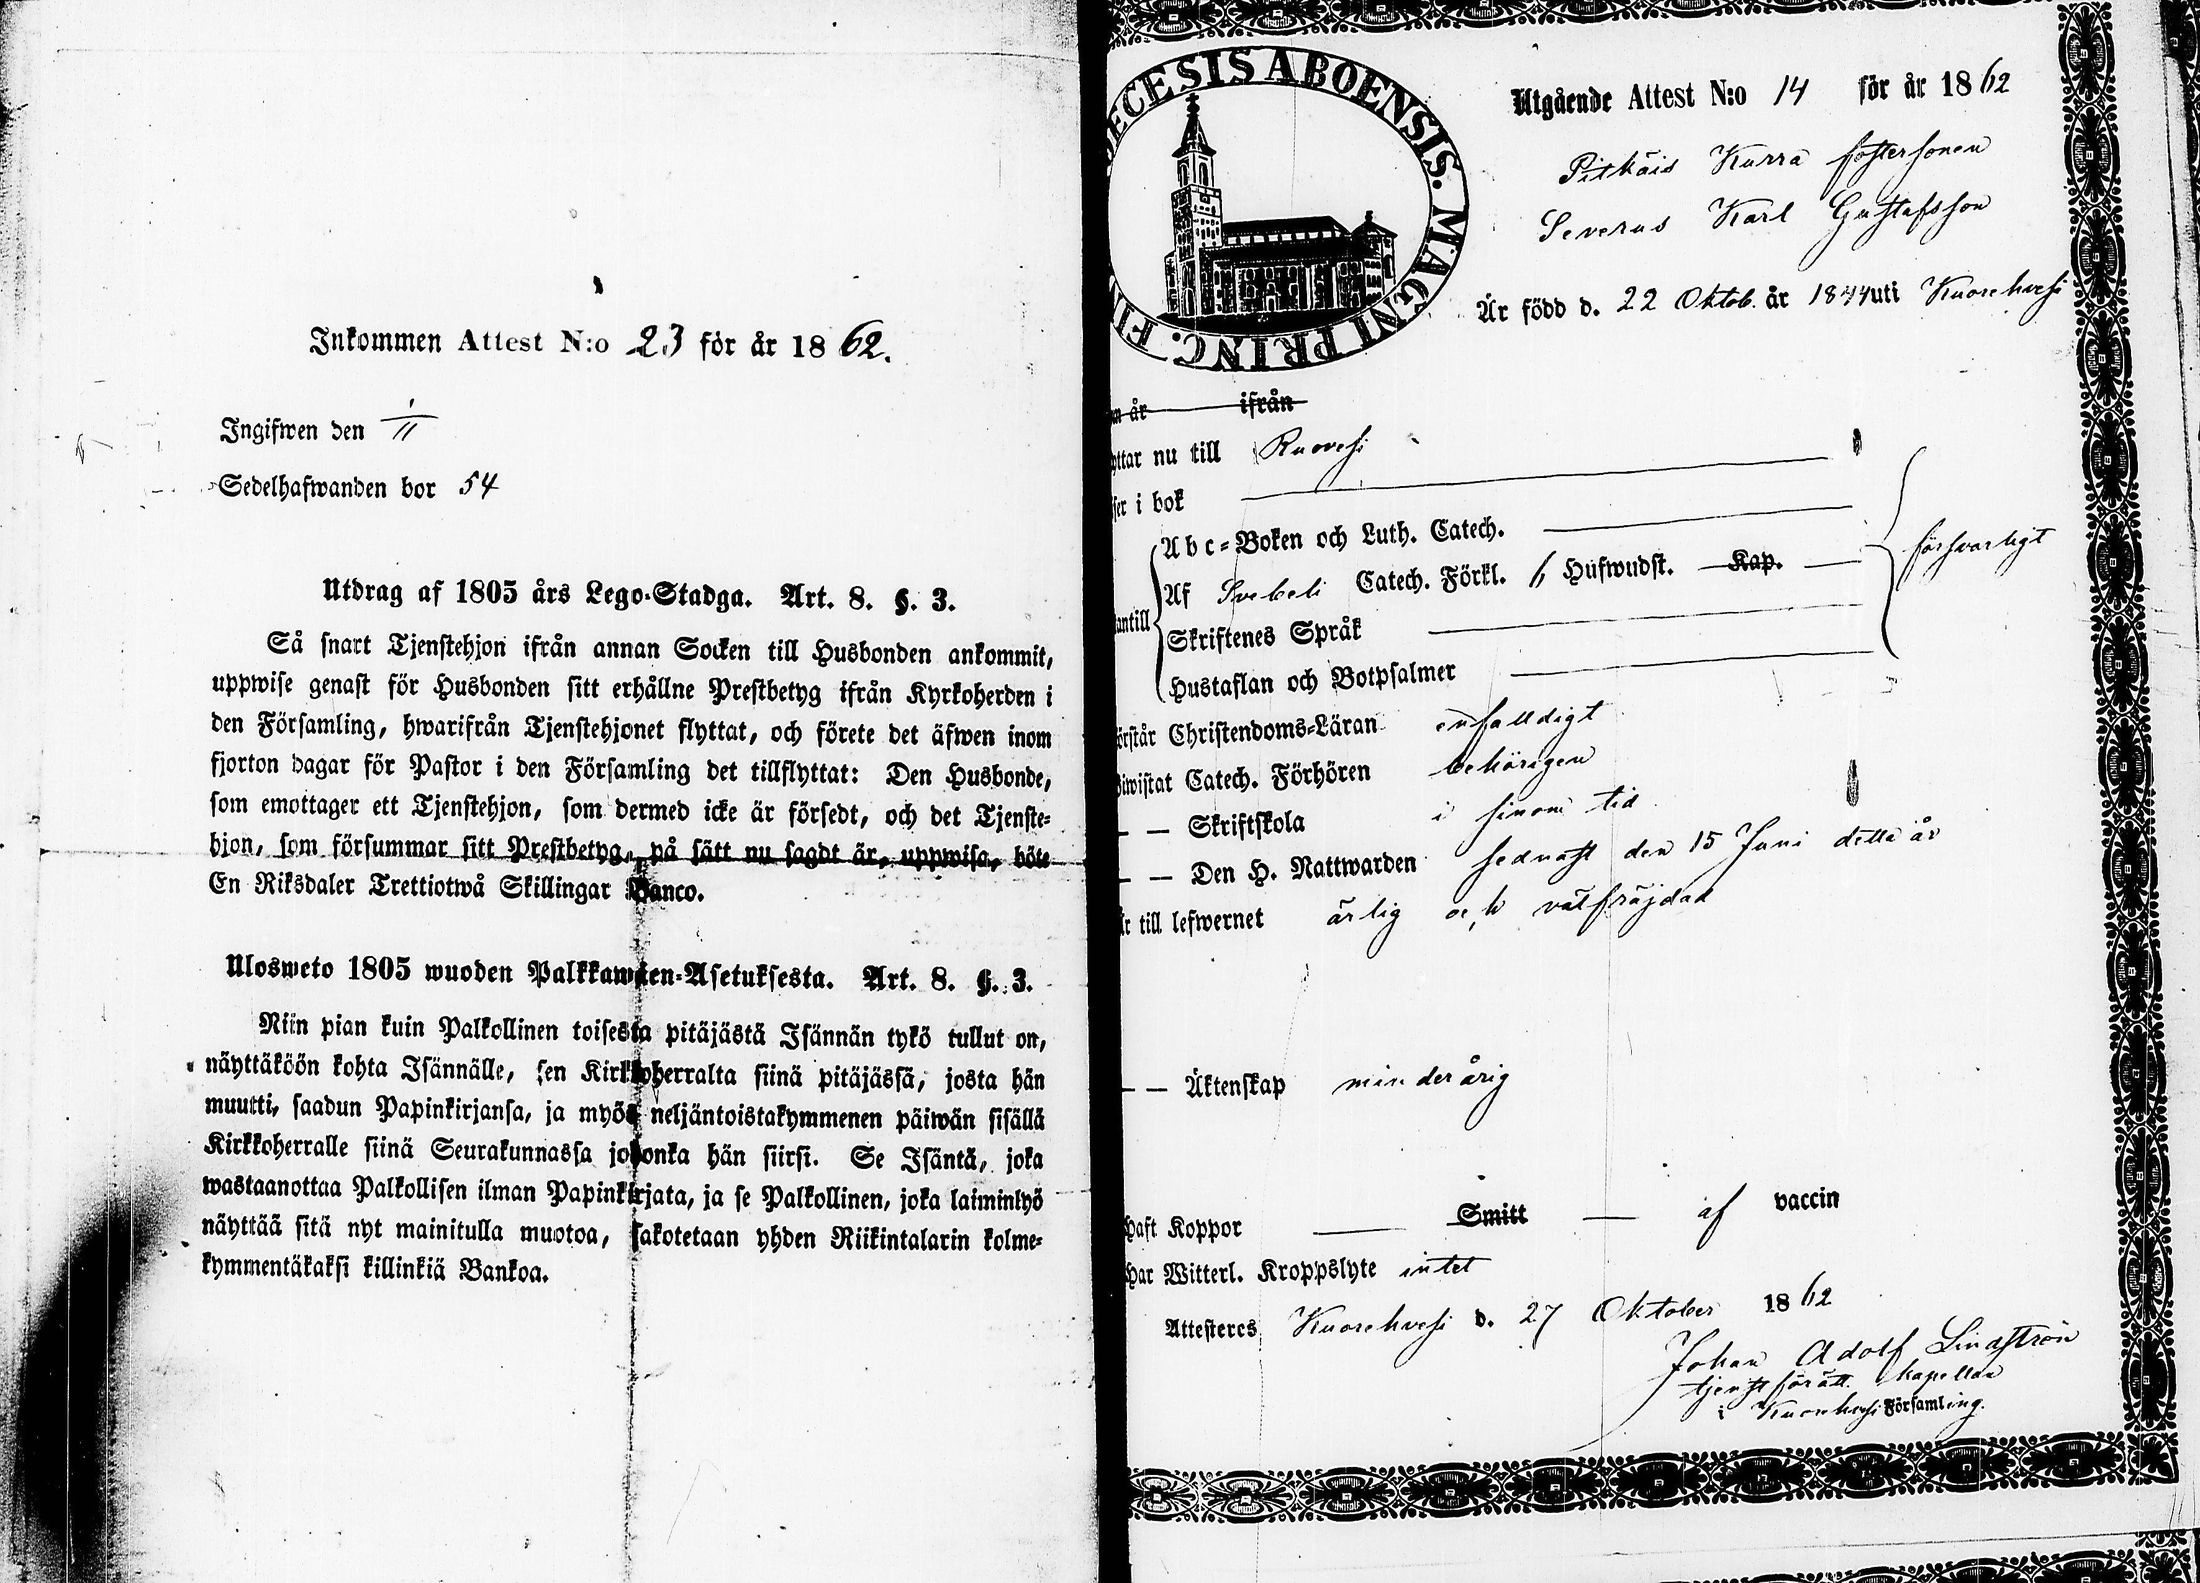 Inkommen Attest N:o 23 för år 1862.
Ingifwen den 1/11
Sedelhafwanden bor 54
Utdrag af 1805 års Lego-Stadga. Art. 8. §. 3.
Så snart Tjenstehjon ifrån annan Socken till Husbonden ankommit,
uppwise genast för Husbonden sitt erhållne Prestbetyg ifrån Kyrkoherden i
den Församling, hwarifrån Tjenstehjonet flyttat, och förete det äfwen inom
fjorton dagar för Pastor i den Församling det tillflyttat: Den Husbonde,
som emottager ett Tjenstehjon, som dermed icke är försedt, och det Tjenste-
hjon, som försummar sitt Prestbetyg, på sätt nu sagdt är, uppwisa, böte
En Riksdaler Trettiotwå Skillingar Banco.
Ulosweto 1805 wuoden Palkkawäen-Asetuksesta. Art. 8. §. 3.
Niin pian kuin Palkollinen toisesta pitäjästä Isännän tykö tullut on,
näyttäköön kohta Isännälle, sen Kirkkoherralta siinä pitäjässä, josta hän
muutti, saadun Papinkirjansa, ja myös neljäntoistakymmenen päiwän sisällä
Kirkkoherralle siinä Seurakunnassa johonka hän siirsi. Se Isäntä, joka
wastaanottaa Palkollisen ilman Papinkirjata, ja se Palkollinen, joka laiminlyö
näyttää sitä nyt mainitulla muotoa, sakotetaan yhden Riikintalarin kolme-
kymmentäkaksi killinkiä Bankoa.
ECESIS ABOENSIS. MAGNI PRINC. FI
Utgående Attest N:o 14 för år 1862
Pitkäis Kurra fostersonen
Severus Karl Gustafsson
Är född d. 22 Oktob. år 1844 uti Kuorehvesi
år ifrån
ttar nu till Ruovesi
ser i bok
Abc-Boken och Luth. Catech.
Af Svebeli Catech. Förkl. 6 Hufwudst. Kap.
försvarligt
antill
Skriftenes Språk
Hustaflan och Botpsalmer
örstår Christendoms-Läran enfalldigt
iwistat Catech. Förhören behörigen
— — Skriftskola i sinom tid
— — Den H. Nattwarden sednast den 15 Juni detta år
är till lefwernet ärlig och välfräjdad
— — Äktenskap minderårig
haft Koppor — Smitt — af vaccin
har Witterl. Kroppslyte intet
Attesteres Kuorehvesi d. 27 Oktober 1862
Johan Adolf Lindström
tjenstförätt. kapellan
i Kuorehvesi Församling.